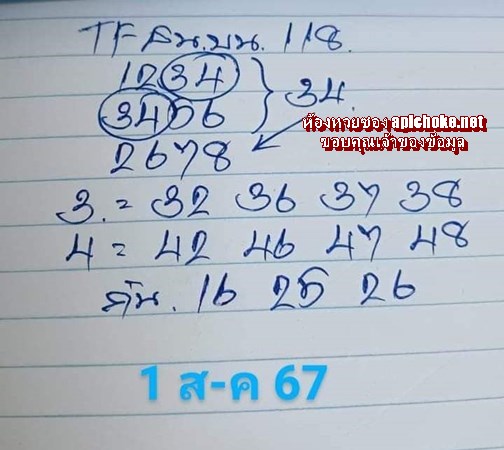 TF สน.บน. 118.
1234
3406 } 34.
ห้องหวยซอง apichoke.net
ขอบคุณเจ้าของข้อมูล
2678
3. = 32 36 37 38
4 = 42 46 47 48
กัน. 16 25 26
1 ส-ค 67